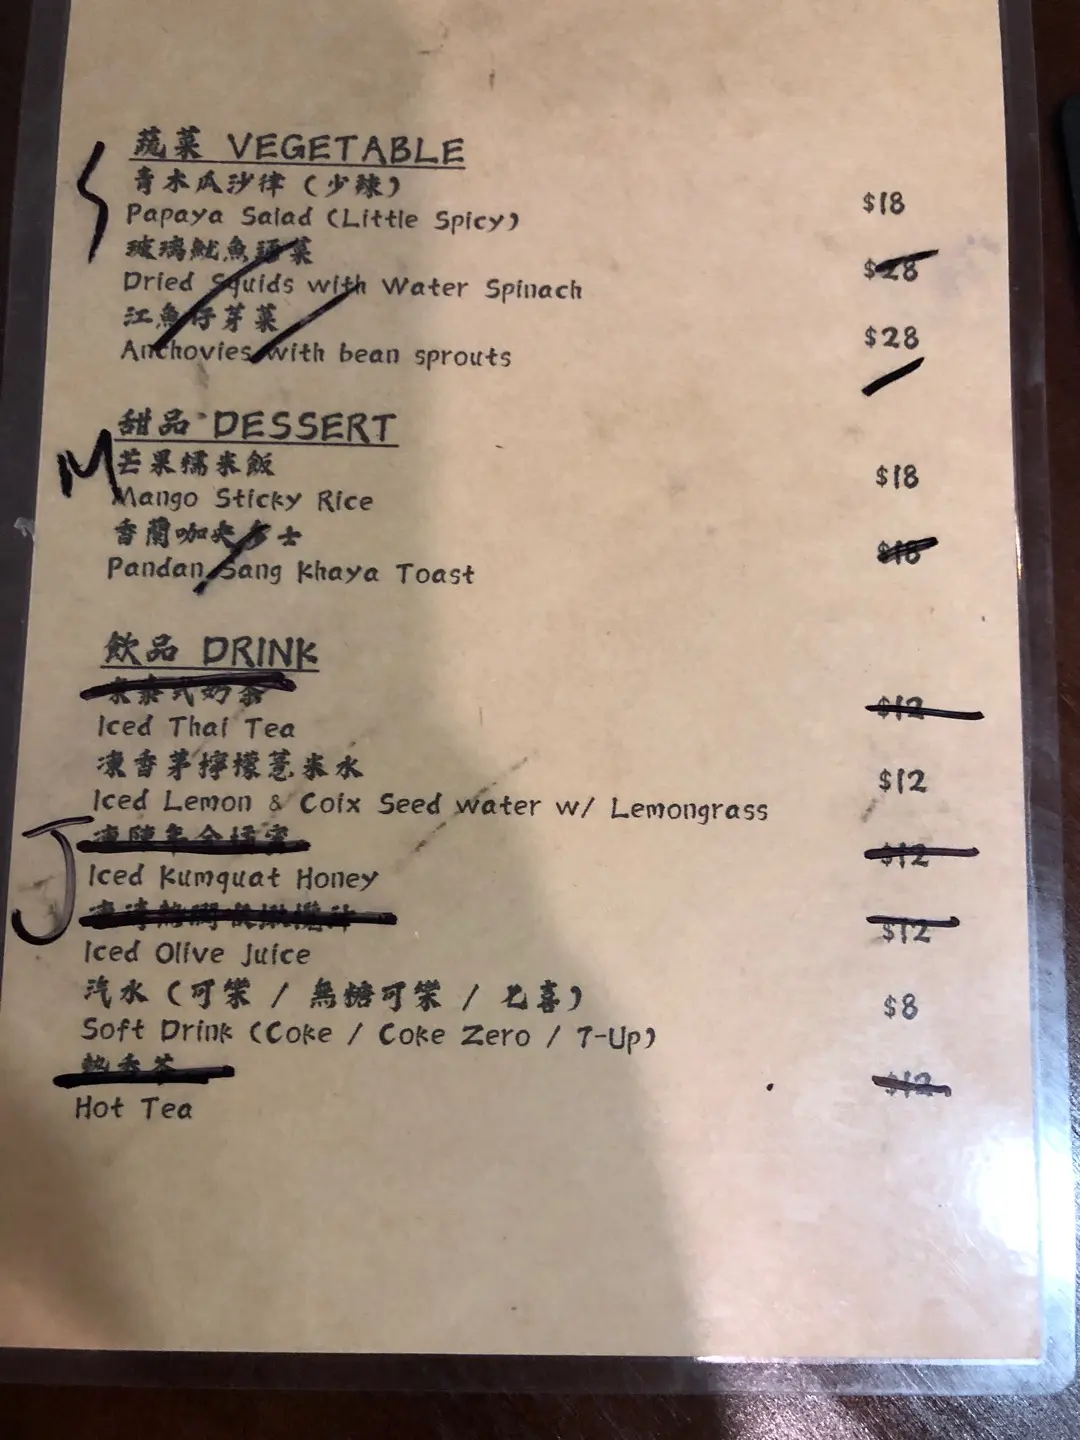 蔬菜 VEGETABLE
青木瓜沙律 (少辣)
Papaya Salad (Little Spicy) $18
玻璃魷魚通菜
Dried Squids with Water Spinach $28
江魚仔芽菜
Anchovies with bean sprouts $28
甜品 DESSERT
M
芒果糯米飯
Mango Sticky Rice $18
香蘭咖央多士
Pandan Sang Khaya Toast $18
飲品 DRINK
凍泰式奶茶
Iced Thai Tea $12
凍香茅檸檬薏米水
Iced Lemon & Coix Seed water w/ Lemongrass $12
J
Iced Kumquat Honey $12
Iced Olive Juice $12
汽水 (可樂 / 無糖可樂 / 七喜)
Soft Drink (Coke / Coke Zero / 7-Up) $8
Hot Tea $12